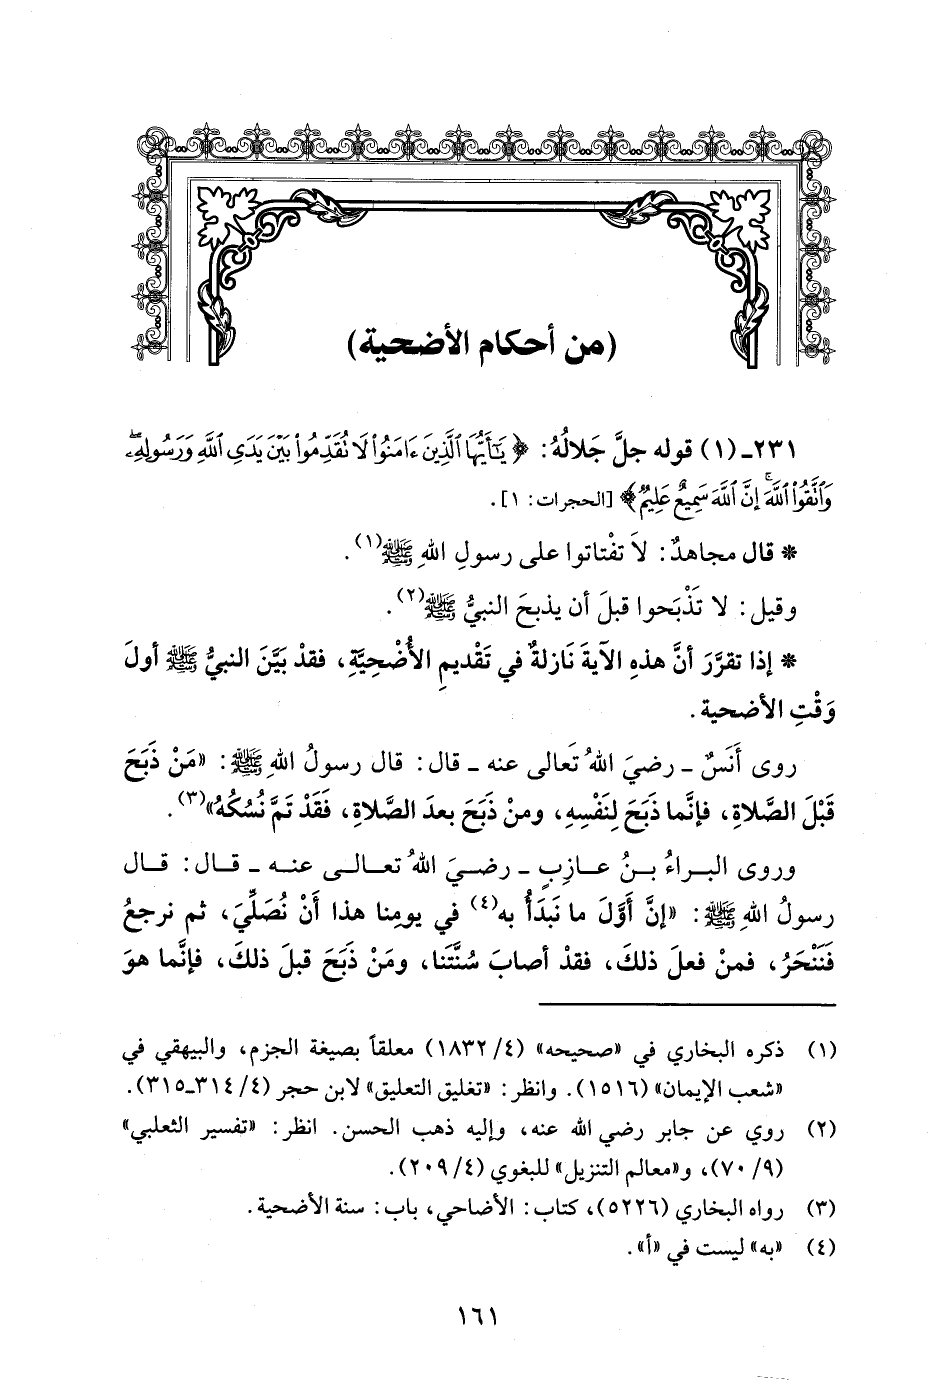 (من أحكام الأضحية)
٢٣١ـ (١) قوله جلَّ جَلالُهُ: ﴿ يَـٰٓأَيُّهَا ٱلَّذِينَ ءَامَنُوا۟ لَا تُقَدِّمُوا۟ بَيْنَ يَدَىِ ٱللَّهِ وَرَسُولِهِۦ ۖ
وَٱتَّقُوا۟ ٱللَّهَ ۚ إِنَّ ٱللَّهَ سَمِيعٌ عَلِيمٌ ﴾ [الحجرات: ١].
* قال مجاهدٌ: لاَ تفْتاتوا على رسولِ اللهِ ﷺ(١).
وقيل: لا تَذْبَحوا قبلَ أن يذبحَ النبيُّ ﷺ(٢).
* إذا تقرَّرَ أنَّ هذهِ الآيةَ نَازلةٌ في تَقْديمِ الأُضْحِيَّةِ، فقدْ بَيَّنَ النبيُّ ﷺ أولَ
وَقْتِ الأضحية.
روى أَنَسٌ ـ رضيَ اللهُ تَعالى عنه ـ قال: قال رسولُ اللهِ ﷺ: «مَنْ ذَبَحَ
قَبْلَ الصَّلاةِ، فإنَّما ذَبَحَ لِنَفْسِهِ، ومنْ ذَبَحَ بعدَ الصَّلاةِ، فَقَدْ تَمَّ نُسُكُهُ»(٣).
وروى البراءُ بنُ عازِبٍ ـ رضيَ اللهُ تعالى عنه ـ قال: قال
رسولُ اللهِ ﷺ: «إنَّ أَوَّلَ ما نَبَدَأُ به(٤) في يومِنا هذا أَنْ نُصَلِّيَ، ثم نرجعُ
فَنَنْحَرُ، فمنْ فعلَ ذلكَ، فقدْ أصابَ سُنَّتَنا، ومَنْ ذَبَحَ قبلَ ذلكَ، فإنَّما هوَ
(١) ذكره البخاري في «صحيحه» (٤/ ١٨٣٢) معلقاً بصيغة الجزم، والبيهقي في
«شعب الإيمان» (١٥١٦). وانظر: «تغليق التعليق» لابن حجر (٤/ ٣١٤ـ٣١٥).
(٢) روي عن جابر رضي الله عنه، وإليه ذهب الحسن. انظر: «تفسير الثعلبي»
(٩/ ٧٠)، و«معالم التنزيل» للبغوي (٤/ ٢٠٩).
(٣) رواه البخاري (٥٢٢٦)، كتاب: الأضاحي، باب: سنة الأضحية.
(٤) «به» ليست في «أ».
١٦١